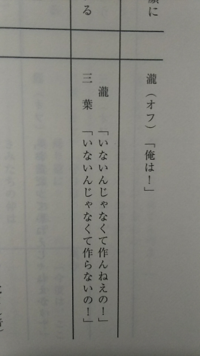 顔に
瀧(オフ)「俺は!」
る
瀧 「いないんじゃなくて作んねえの!」
三 葉 「いないんじゃなくて作らないの!」